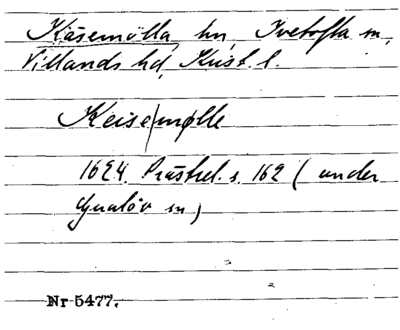 Käsemölla, hn, Ivetofta sn,
Villands hd, Krist. l.
Keise/mølle
1624. Prästrel. s. 162 ( under
Gualöv sn)
Nr 5477.